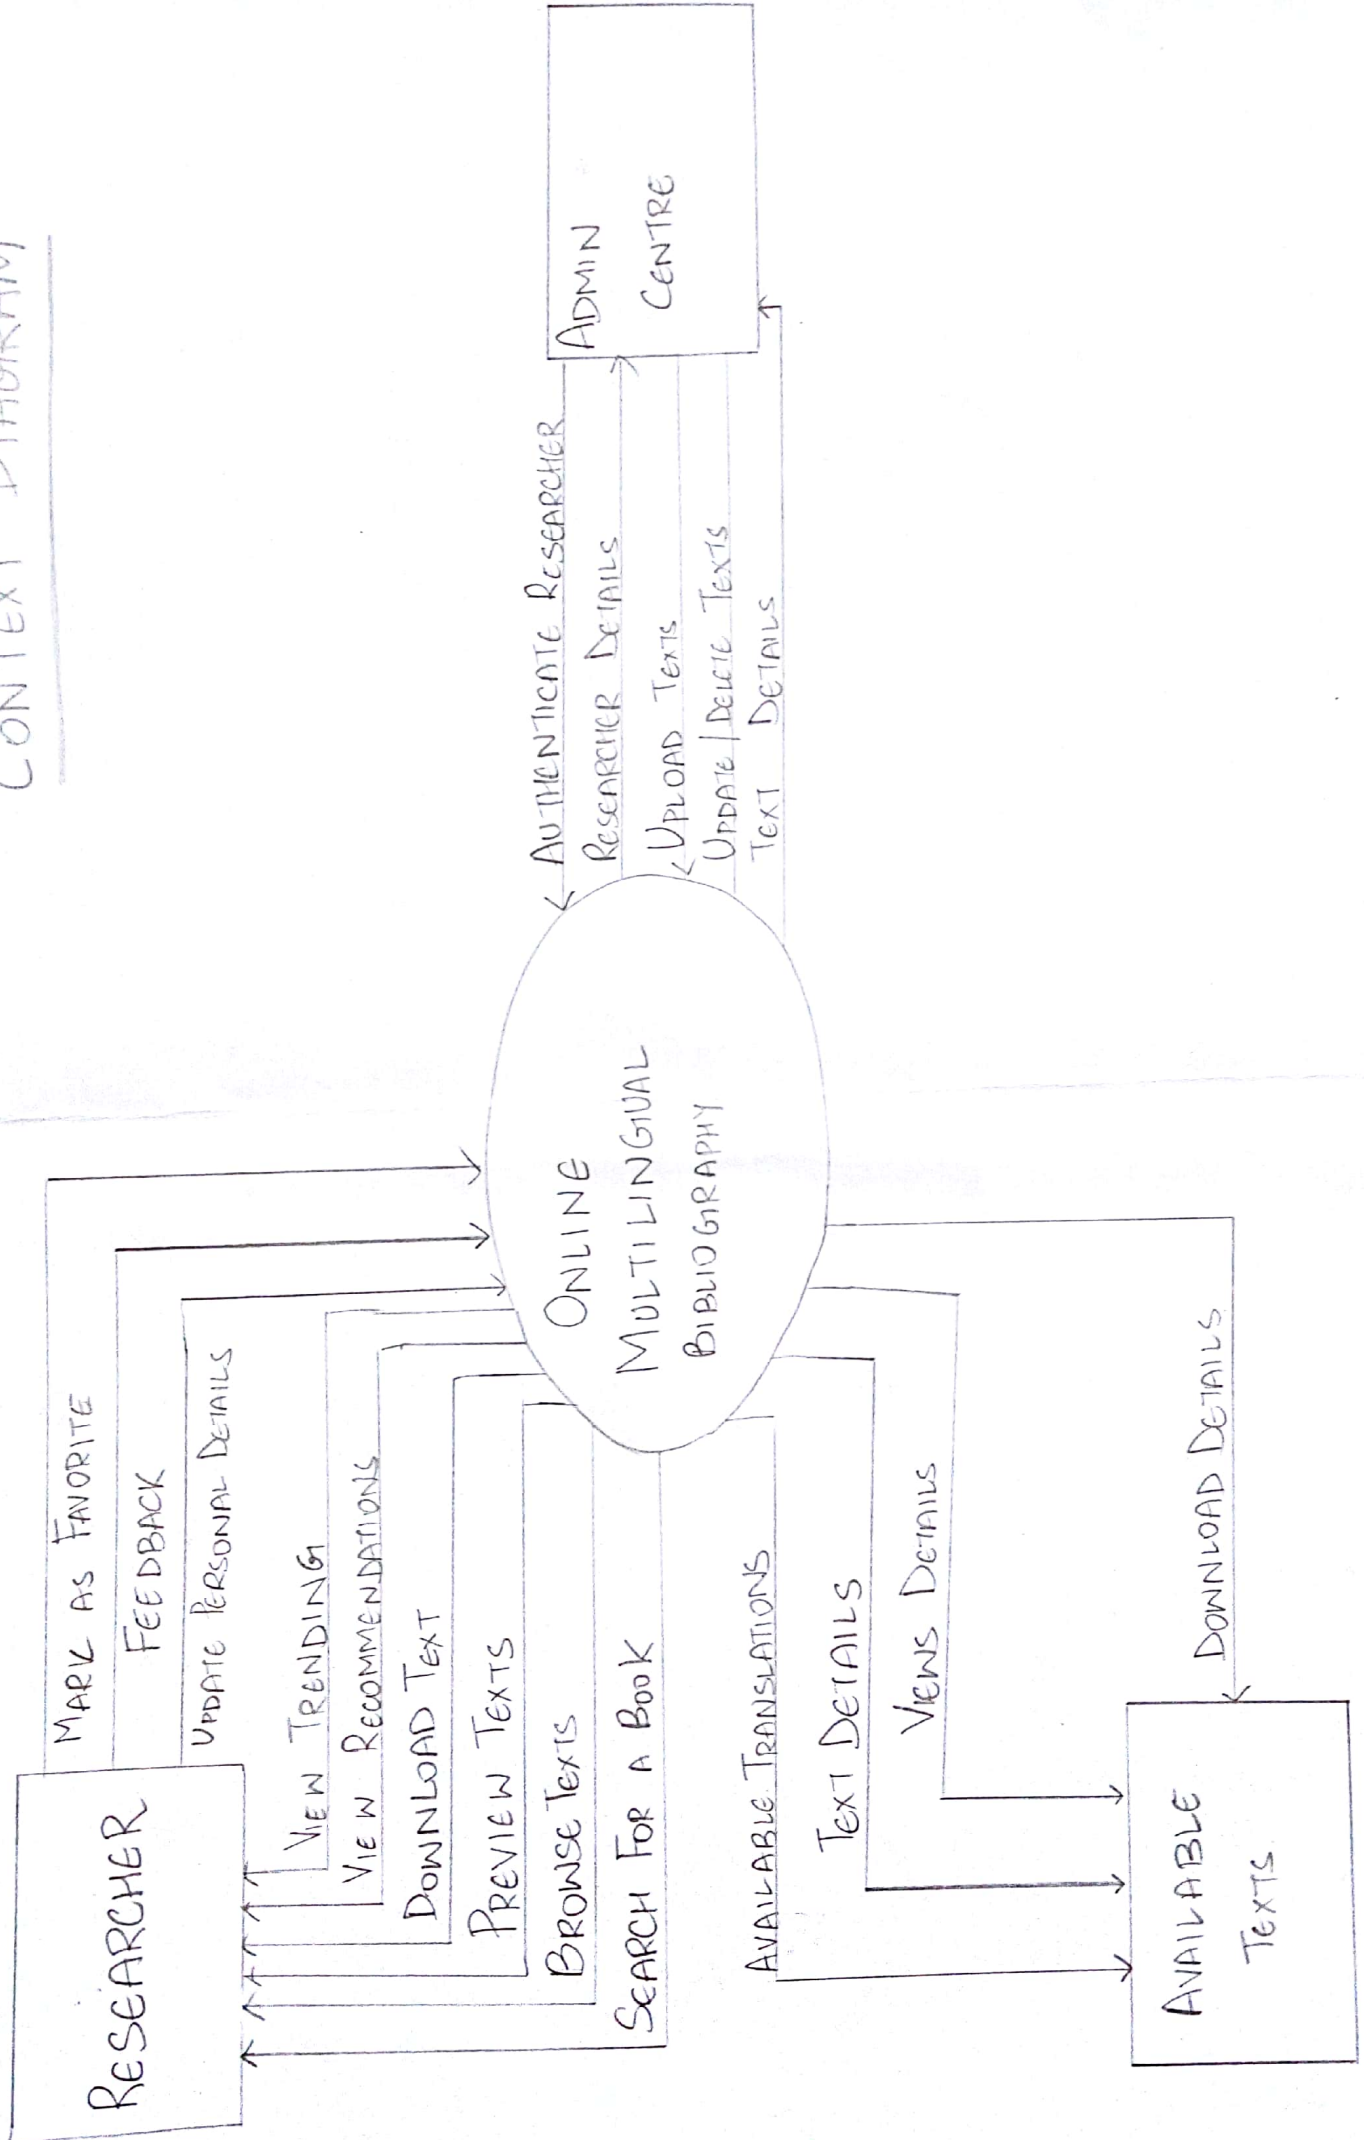 CONTEXT DIAGRAM
RESEARCHER
MARK AS FAVORITE
FEEDBACK
UPDATE PERSONAL DETAILS
VIEW TRENDING
VIEW RECOMMENDATIONS
DOWNLOAD TEXT
PREVIEW TEXTS
BROWSE TEXTS
SEARCH FOR A BOOK
ONLINE
MULTILINGUAL
BIBLIOGRAPHY
AUTHENTICATE RESEARCHER
RESEARCHER DETAILS
UPLOAD TEXTS
UPDATE/DELETE TEXTS
TEXT DETAILS
ADMIN
CENTRE
AVAILABLE TRANSLATIONS
TEXT DETAILS
VIEWS DETAILS
DOWNLOAD DETAILS
AVAILABLE
TEXTS